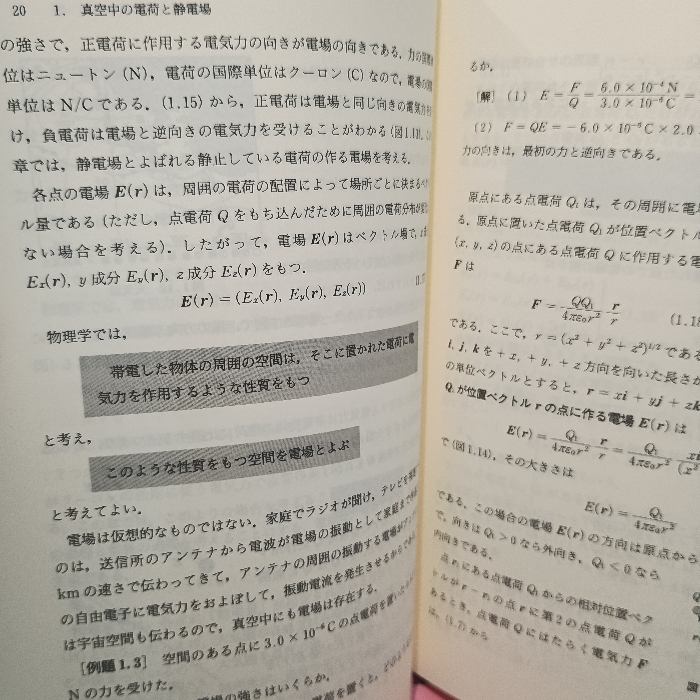 20 1. 真空中の電荷と静電場
の強さで，正電荷に作用する電気力の向きが電場の向きである．力の国際
位はニュートン (N)，電荷の国際単位はクーロン (C) なので，電場の国際
単位は N/C である．(1.15) から，正電荷は電場と同じ向きの電気力を
け，負電荷は電場と逆向きの電気力を受けることがわかる (図1.13)．この
章では，静電場とよばれる静止している電荷の作る電場を考える．
各点の電場 E(r) は，周囲の電荷の配置によって場所ごとに決まるベク
ル量である (ただし，点電荷 Q をもち込んだために周囲の電荷分布が
ない場合を考える)．したがって，電場 E(r) はベクトル場で，x
Ex(r), y 成分 Ey(r), z 成分 Ez(r) をもつ．
E(r) = (Ex(r), Ey(r), Ez(r))
物理学では，
帯電した物体の周囲の空間は，そこに置かれた電荷に電
気力を作用するような性質をもつ
と考え，
このような性質をもつ空間を電場とよぶ
と考えてよい．
電場は仮想的なものではない．家庭でラジオが聞け，テレビを
のは，送信所のアンテナから電波が電場の振動として家庭まで
km の速さで伝わってきて，アンテナの周囲の振動する電場が
の自由電子に電気力をおよぼして，振動電流を発生させるからである．
は宇宙空間も伝わるので，真空中にも電場は存在する．
[例題 1.3] 空間のある点に 3.0 × 10⁻⁶ C の点電荷を置いた
N の力を受けた．
電場の強さはいくらか．
電荷を置くと，
るか．
[解] (1) E = F/Q = 6.0 × 10⁻⁴ N / 3.0 × 10⁻⁶ C =
(2) F = QE = −6.0 × 10⁻⁶ C × 2.0
力の向きは，最初の力と逆向きである．
原点にある点電荷 Q₁ は，その周囲に電場
る．原点に置いた点電荷 Q₁ が位置ベクトル
(x, y, z) の点にある点電荷 Q に作用する電
F は
F = QQ₁/4πε₀r² r/r (1.18
である．ここで，r = (x² + y² + z²)^1/2 である
i, j, k を +x, +y, +z 方向を向いた長さが
の単位ベクトルとすると，r = xi + yj + zk
Q₁ が位置ベクトル r の点に作る電場 E(r) は
E(r) = Q₁/4πε₀r² r/r = Q₁/4πε₀r² xi/(x²
で (図1.14)，その大きさは
E(r) = Q₁/4πε₀r²
である．この場合の電場 E(r) の方向は原点から
で，向きは Q₁ > 0 なら外向き，Q₁ < 0 なら
内向きである．
点 r₁ にある点電荷 Q₁ からの相対位置ベク
トルが r − r₁ の点 r に第2の点電荷 Q が
あるとき，点電荷 Q にはたらく電気力 F
は，(1.7) から